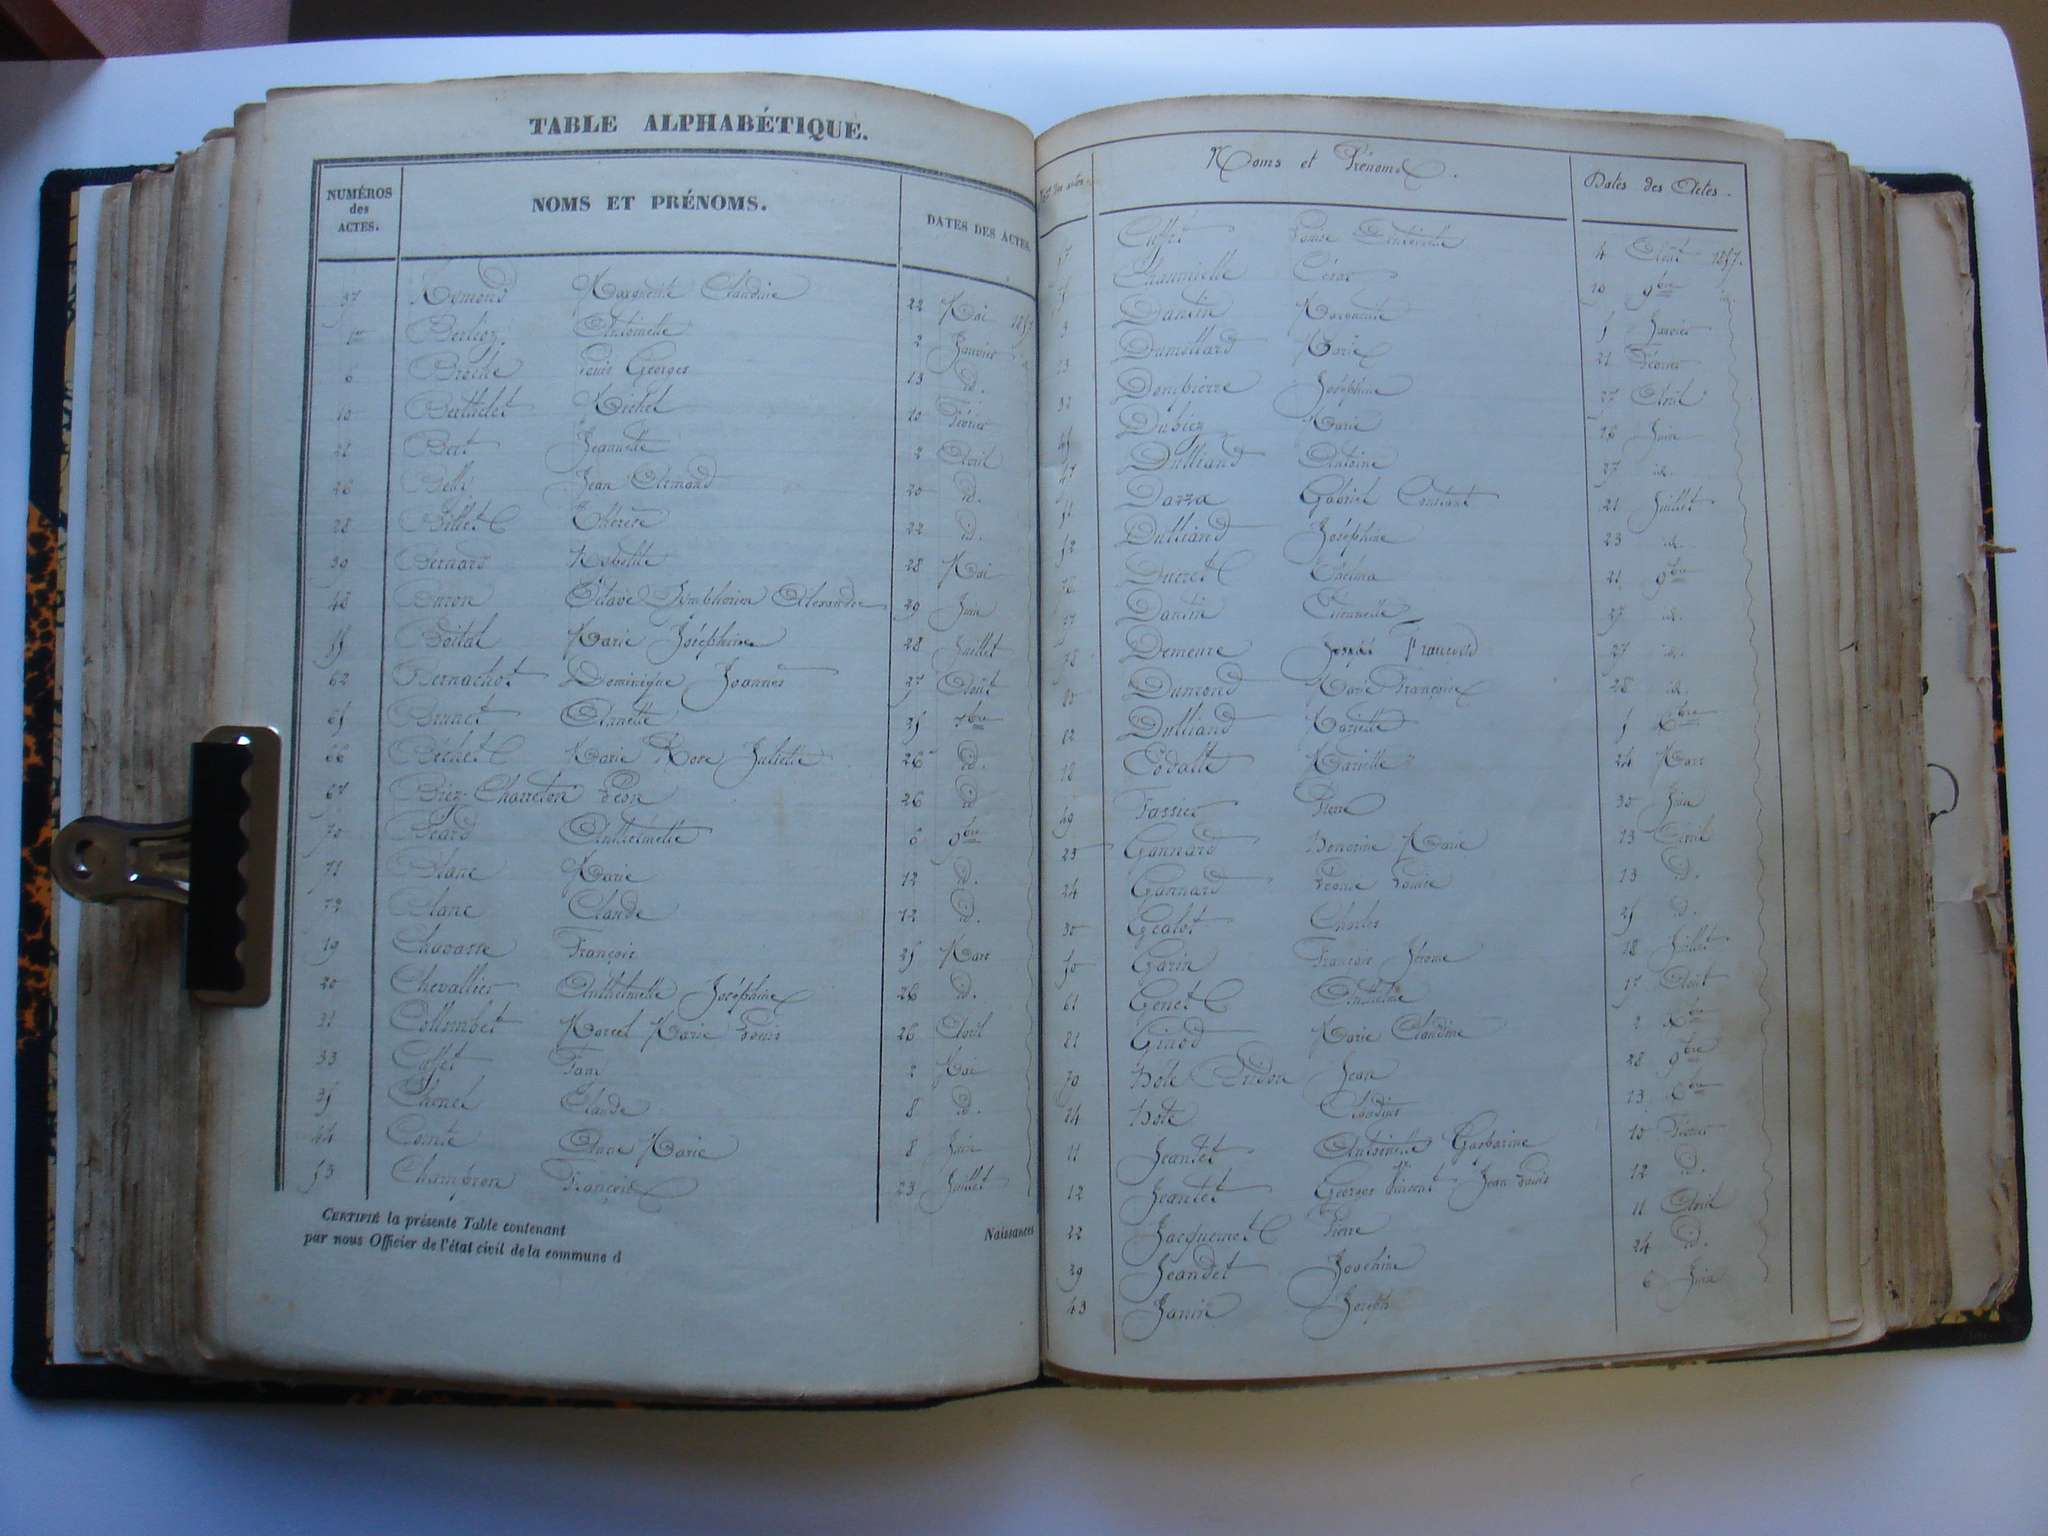 TABLE ALPHABÉTIQUE.
NUMÉROS des ACTES. NOMS ET PRÉNOMS. DATES DES ACTES.
37 Marguerite Claudine 22 Mai 1857
1er Berlioz Antoinette 2 Janvier
6 Broche Louis Georges 13 id.
10 Berthelet Michel 10 Février
21 Bert Jeannette 2 Avril
26 Belli Jean Armand 20 id.
28 Billet Thérèse 22 id.
39 Bernard 28 Mai
48 Octave Symphorien Alexandre 29 Juin
55 Boital Marie Joséphine 28 Juillet
62 Bernachot Dominique Joannès 27 Août
65 Brunet Annette 25 7bre
66 Béchet Marie Rose Juliette 26 id.
67 Biez-Charreton Léon 26 id
70 Béard Anthelmette 6 9bre
71 Blanc Marie 12 id.
72 Blanc Claude 12 id.
19 Chavasse François 25 Mars
20 Chevallier Anthelmette Joséphine 26 id.
31 Collombet Marcel Marie Louis 26 Avril
33 Caffet Fany 2 Mai
35 Chenel Claude 8 id.
44 Comte Anne Marie 8 Juin
53 Champion François 23 Juillet
CERTIFIÉ la présente Table contenant Naissances
par nous Officier de l'état civil de la commune d
Noms et Prénoms. Dates des Actes.
57 Caffet Louise Antoinette 4 Août 1857.
Chaumielle César 10 9bre id.
Dantin Marguerite 5 Janvier
13 Dumollard Marie 21 Février
32 Dompierre Joséphine 27 Avril
45 Dubiez Marie 16 Juin
47 Dulliand Antoine 27 id.
51 Dazza Gabriel Constant 21 Juillet
52 Dulliand Joséphine 23 id.
76 Ducret Thelma 21 9bre
77 Dantin Etiennette 27 id.
78 Demeure Joseph François 27 id.
80 Dumond Marie Françoise 28 id.
82 Dulliand Mariette 5 Xbre
18 Mariette 24 Mars
49 Tassier Pierre 30 Juin
23 Gannard Honorine Marie 13 Avril
24 Gannard Léonie Louise 13 id.
30 Gealot Charles 25 id.
50 Garin François Jérôme 18 Juillet
61 Genet Anthelme 17 Août
81 Girod Marie Claudine 2 Xbre
79 Hote Dridon Jean 28 9bre
84 Hote Claudius 13 Xbre
11 Jeantet Antoinette Gasparine 10 Février
12 Jeantet Georges Vincent Jean Louis 12 id.
22 Jacquemet Pierre 11 Avril
29 Jeandet Joachim 24 id.
43 Janin Joseph 6 Juin